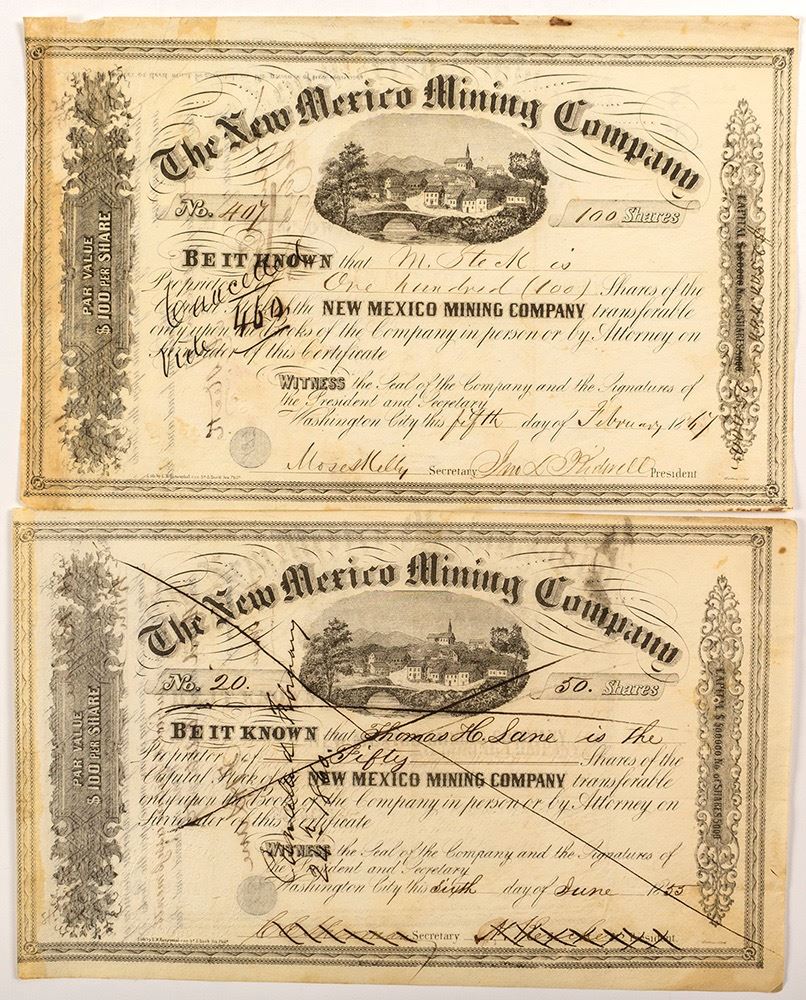 The New Mexico Mining Company
No. 407
100 Shares
PAR VALUE
$100 PER SHARE
BE IT KNOWN that M. Steck is
Proprietor One hundred (100) Shares of the
the NEW MEXICO MINING COMPANY transferable
only upon the Books of the Company in person or by Attorney on
Surrender of this Certificate
Cancelled
Vide 460
WITNESS the Seal of the Company and the Signatures of
the President and Secretary
Washington City this fifth day of February 1867
Moses Kelly Secretary Jno L Kidwell President
CAPITAL $ 500000 No. of SHARES 5000
The New Mexico Mining Company
No. 20.
50. Shares
PAR VALUE
$100 PER SHARE
BE IT KNOWN that Thomas H. Lane is the
Proprietor of Fifty Shares of the
Capital Stock of the NEW MEXICO MINING COMPANY transferable
only upon the Books of the Company in person or by Attorney on
Surrender of this Certificate
WITNESS the Seal of the Company and the Signatures of
the President and Secretary
Washington City this sixth day of June 1855
Secretary President
CAPITAL $ 500000 No. of SHARES 5000